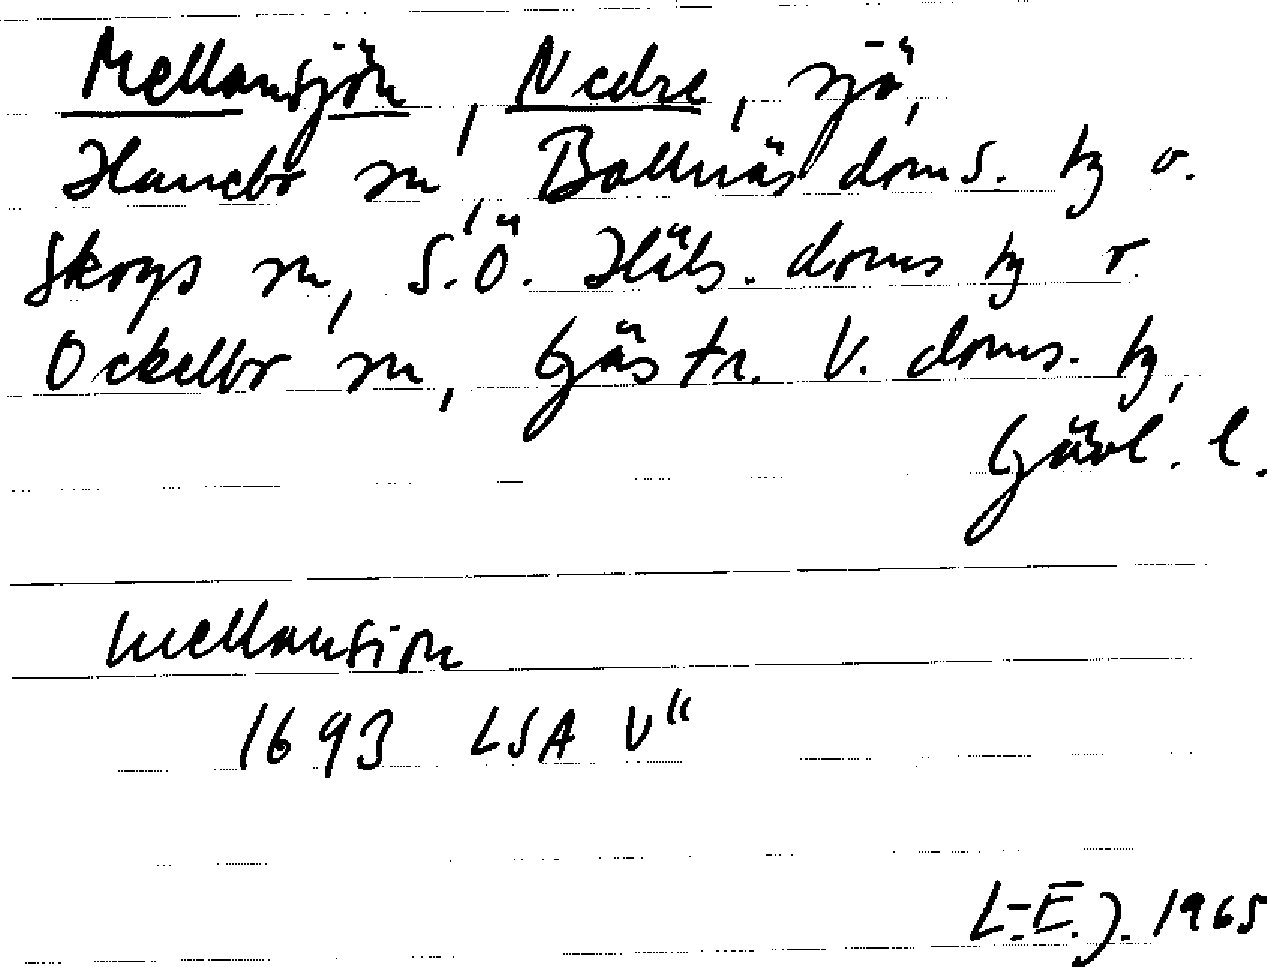 Mellansjön, Nedre, sjö,
Hanebo sn, Bollnäs doms. hg o.
Skogs sn, S.Ö. Häls. doms hg o.
Ockelbo sn, Gästr. V. doms. hg,
Gävl. l.
Mellansiön
1693 LSA V"
L.-E. J. 1965